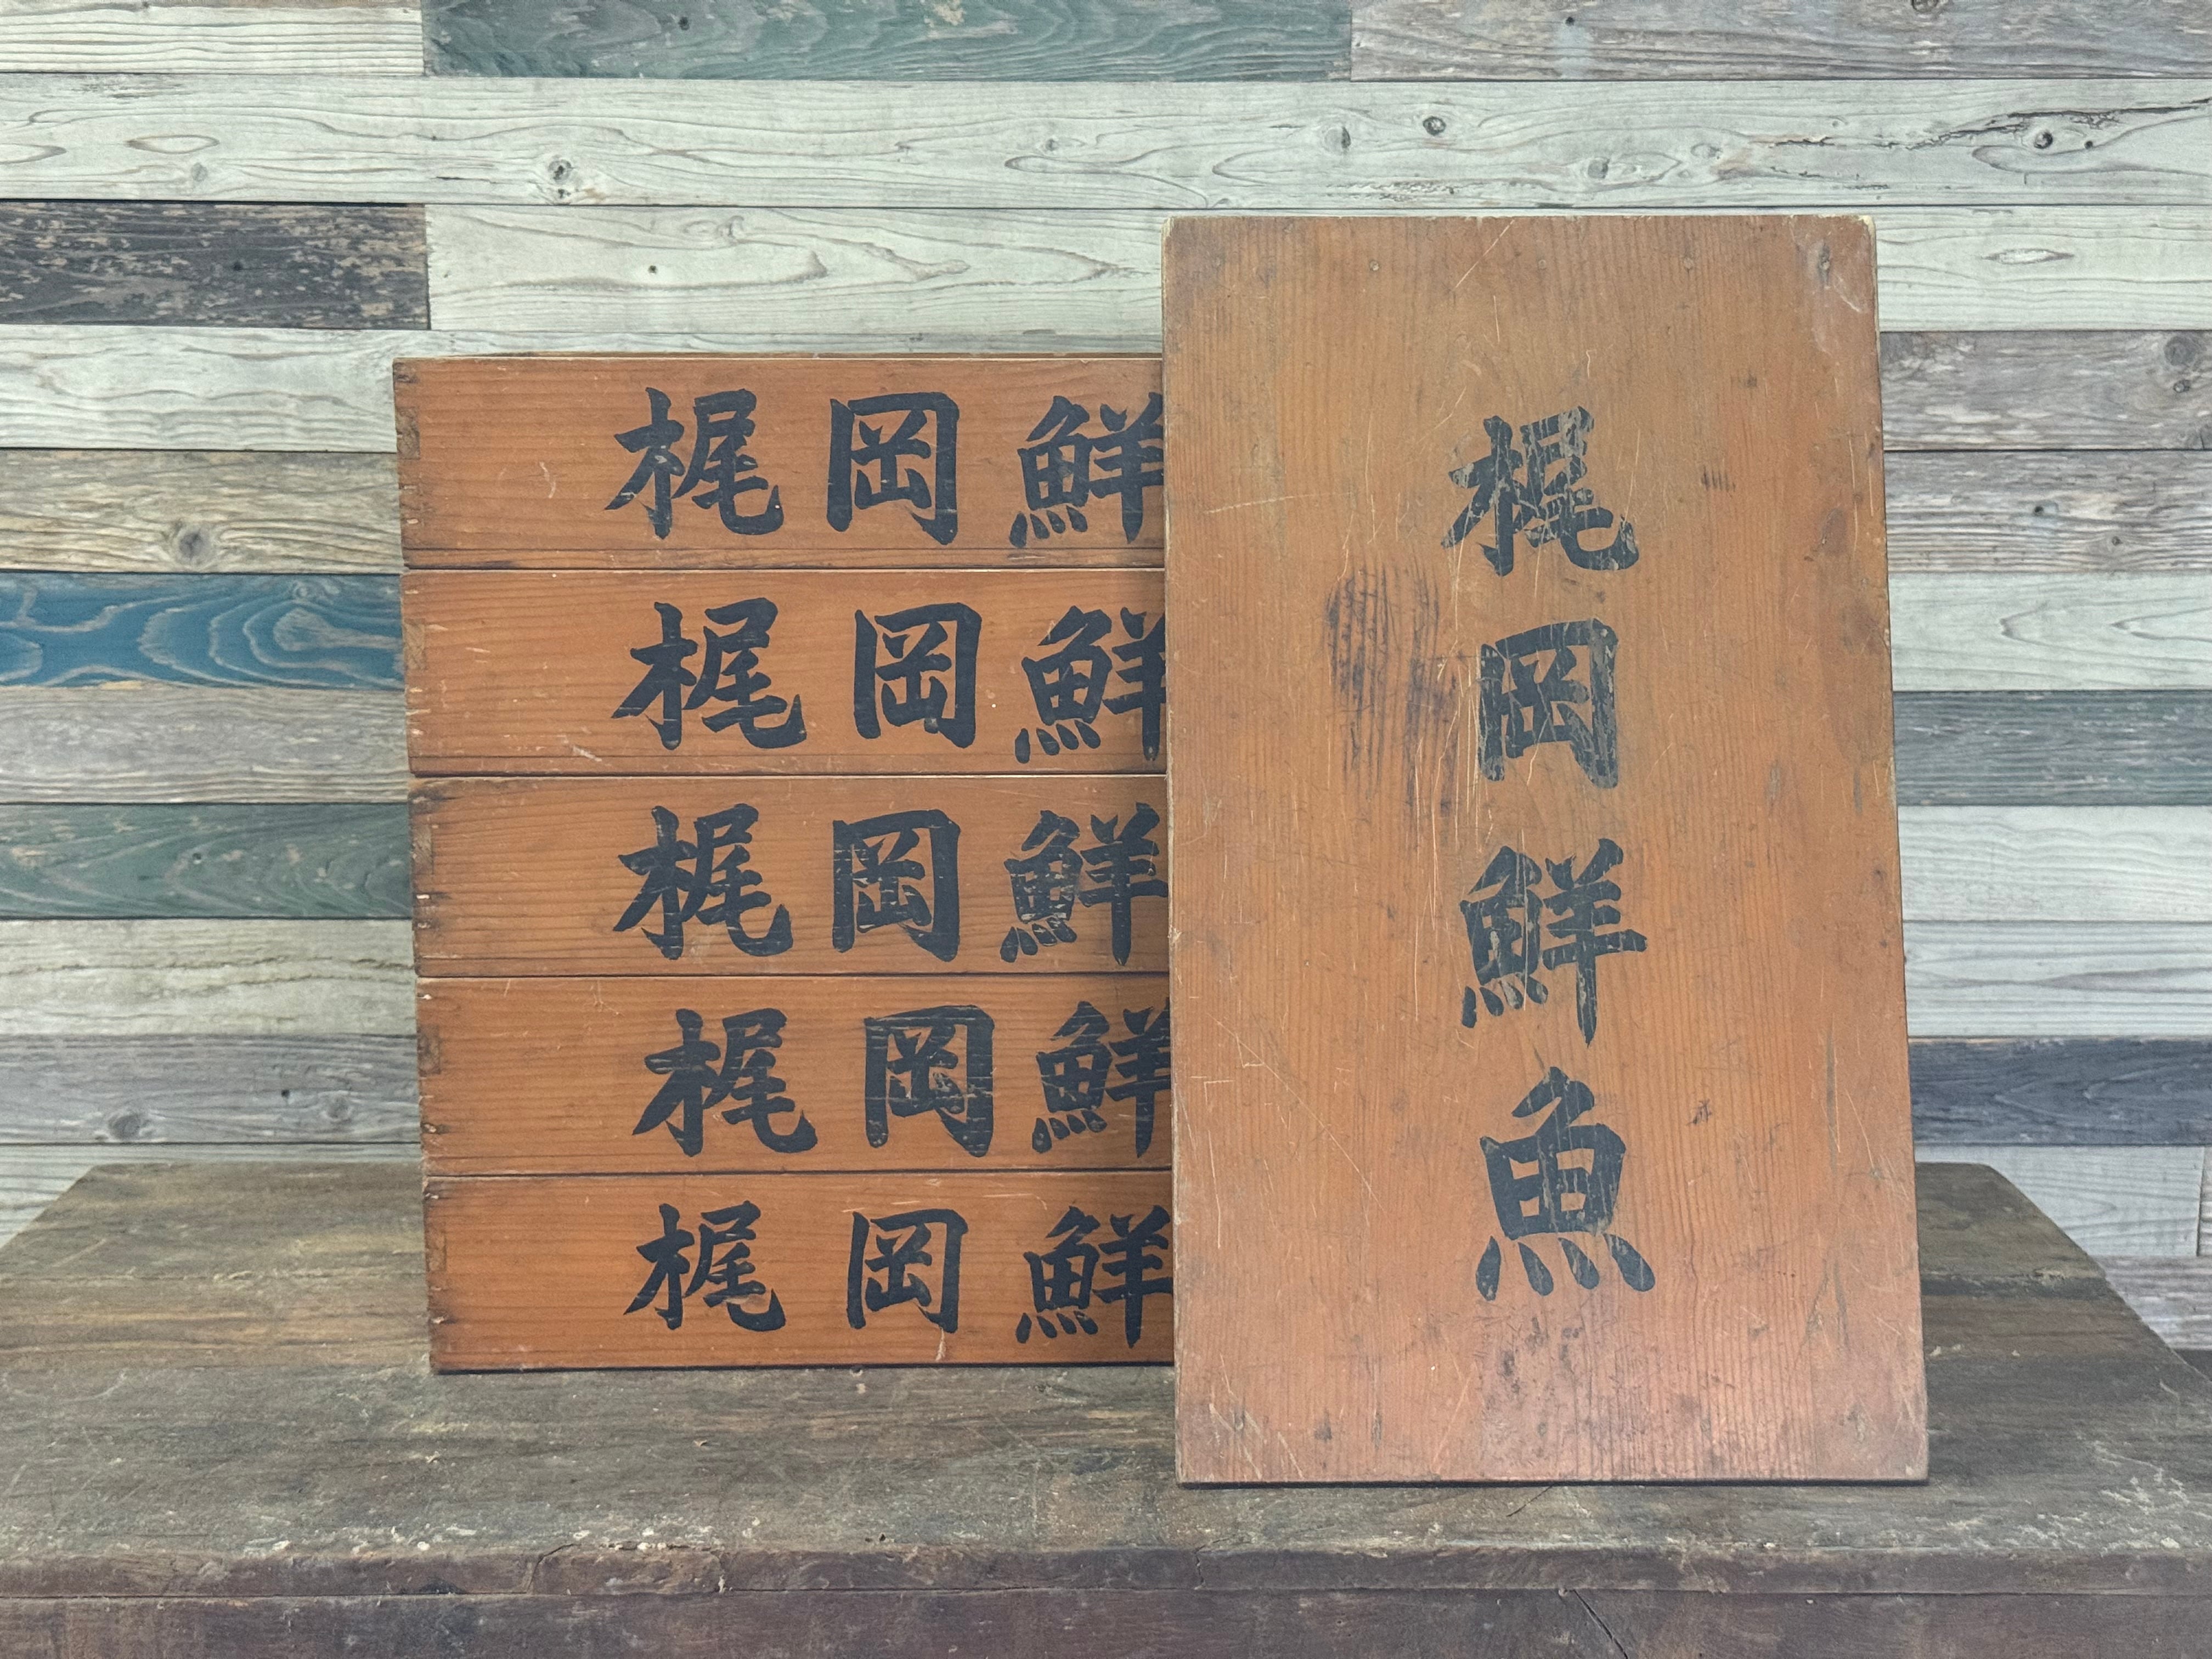 梶岡鮮
梶岡鮮
梶岡鮮
梶岡鮮
梶岡鮮
梶岡鮮魚